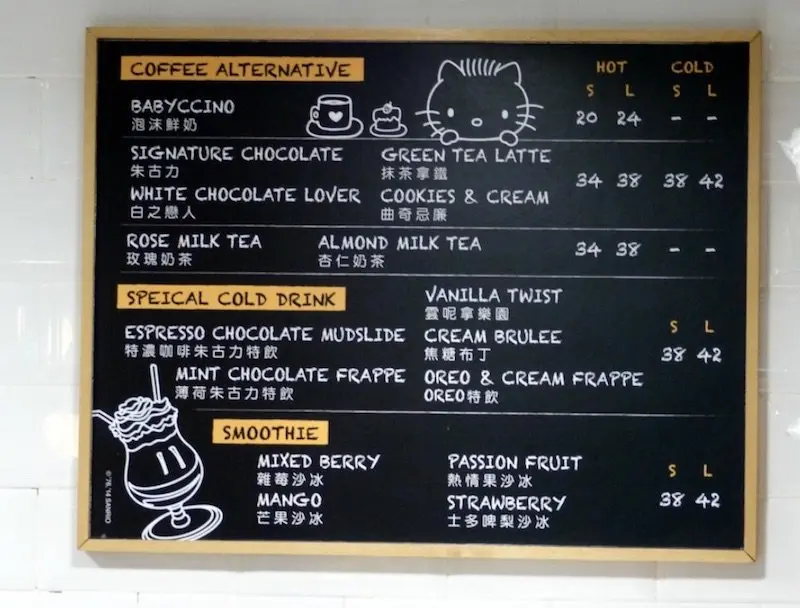 COFFEE ALTERNATIVE
HOT COLD
S L S L
BABYCCINO
泡沫鮮奶
20 24 - -
SIGNATURE CHOCOLATE GREEN TEA LATTE
朱古力 抹茶拿鐵
34 38 38 42
WHITE CHOCOLATE LOVER COOKIES & CREAM
白之戀人 曲奇忌廉
ROSE MILK TEA ALMOND MILK TEA
玫瑰奶茶 杏仁奶茶
34 38 - -
SPEICAL COLD DRINK
VANILLA TWIST
雲呢拿樂園
S L
ESPRESSO CHOCOLATE MUDSLIDE CREAM BRULEE
特濃咖啡朱古力特飲 焦糖布丁
38 42
MINT CHOCOLATE FRAPPE OREO & CREAM FRAPPE
薄荷朱古力特飲 OREO特飲
SMOOTHIE
MIXED BERRY PASSION FRUIT
雜莓沙冰 熱情果沙冰
S L
MANGO STRAWBERRY
芒果沙冰 士多啤梨沙冰
38 42
©'76, '14 SANRIO